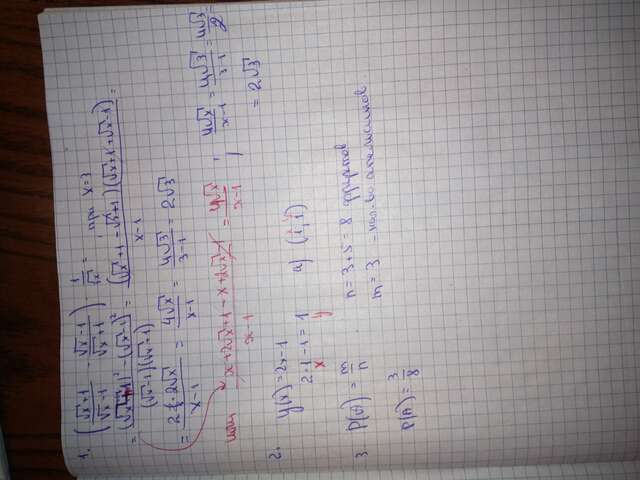 1. (√x+1/√x-1 - √x-1/√x+1) : 1/√x = , при x=3
= (√x+1)² - (√x-1)² / (√x-1)(√x+1) = (√x+1-√x+1)(√x+1+√x-1) / x-1 =
= 2·2√x / x-1 = 4√x / x-1 = 4√3 / 3-1 = 2√3
или x+2√x+1-x+2√x-1 / x-1 = 4√x / x-1 ; 4√x / x-1 = 4√3 / 3-1 = 4√3 / 2 =
= 2√3
2. y(x) = 2x-1
2·1-1=1 а) (1,1)
x y
3. P(A) = m/n . n = 3+5=8 фруктов
m = 3 - кол.во апельсинов.
P(A) = 3/8